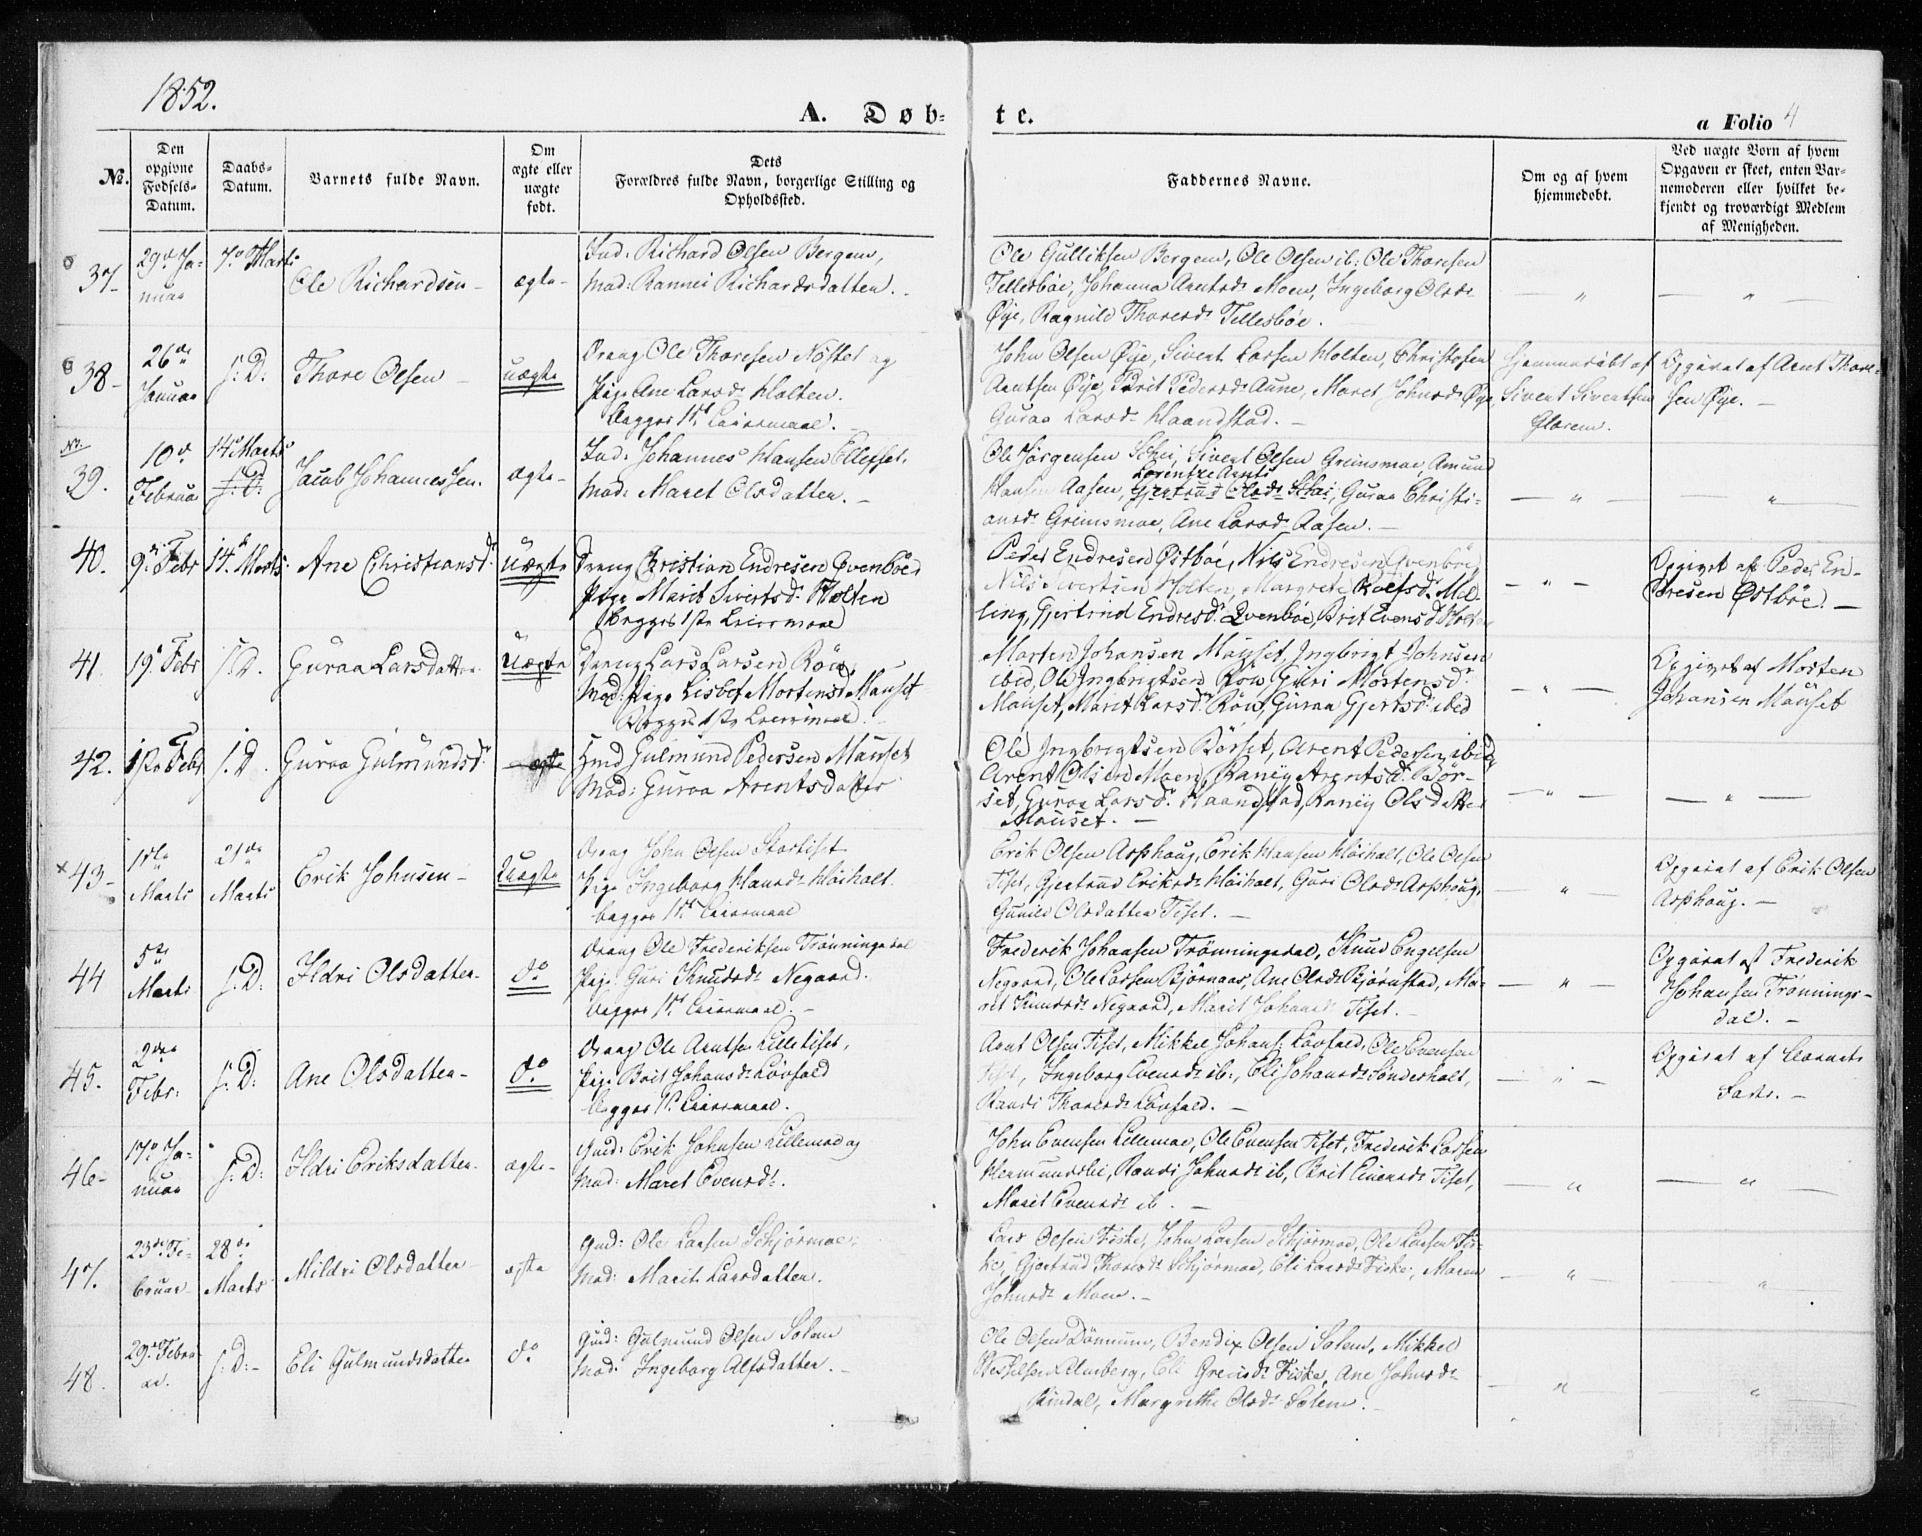 1852.
A. Døb-
te.
a Folio 4
No.
Den opgivne Fødsels-Datum.
Daabs-Datum.
Barnets fulde Navn.
Om ægte eller uægte født.
Dets Forældres fulde Navn, borgerlige Stilling og Opholdssted.
Faddernes Navne.
Om og af hvem hjemmedøbt.
Ved uægte Børn af hvem Opgaven er skeet, enten Barnemoderen eller hvilket bekjendt og troværdigt Medlem af Menigheden.
37
29de Januar
7de Marts
Ole Richardsen
ægte
Ind: Richard Olsen Bergem,
Mod: Rannei Richardsdatter.
Ole Gulliksen Bergem, Ole Olsen ib: Ole Thoresen
Tellesbøe, Johanna Arntsdr Moen, Ingeborg Olsdr
Øye, Ragnild Thoresdr Tellesbøe.
38
26de Januar
s: D:
Thore Olsen
uægte
Dreng Ole Thoresen Nøstet og
Pige Ane Larsdr Holten.
begges 1ste Leiermaal.
John Olsen Øye, Sivert Larsen Holten, Christofer
Arntsen Øye, Brit Pedersdr Aune, Maret Johnsdr Øye,
Guraa Larsdr Haandstad.
Hjemmedøbt af
Sivert Sivertsen
Glærem.
Opgivet af Arnt Thore-
sen Øye.
39.
10de Februar
14de Marts
s: D:
Jacob Johannessen.
ægte
Ind: Johannes Hansen Ellefset.
Mod: Maret Olsdatter.
Ole Jørgensen Schei, Sivert Olsen Grimsmoe, Amund
Lorentze Arnts
Hansen Aasen, Gjertrud Olsdr Schei, Guraa Christi-
ansdr Grimsmoe, Ane Larsdr Aasen.
40.
9de Febr
14de Marts
Ane Christiansdr
Uægte
Dreng Christian Endresen Qvenbøe
Pige Marit Sivertsdr Holten
begges 1ste Leiermaal
Peder Endresen Østbøe, Nils Endresen Qvenbøe
Nils Sivertsen Holten, Margrete Rolfsdr Mel-
ling, Gjertrud Endresdr Qvenbøe, Brit Evensdr Holten
Opgivet af Peder En-
dresen Østbøe.
41.
19de Febr
s. D.
Guraa Larsdatter
Uægte
Dreng Lars Larsen Røu
Mod: Pige Lisbet Mortensdr Mauset
Begges 1ste Leiermaal.
Morten Johansen Mauset, Ingbrigt Johnsen
ibid, Ole Ingbrigtsen Røu, Guri Mortensdr
Mauset, Marit Larsdr Røu, Guraa Gjertsdr ibid
Opgivet af Morten
Johansen Mauset
42.
Febr
s. D.
Guraa Gulmundsdr
ægte
Gmd Gulmund Pedersen Mauset
Mod: Guraa Arentsdatter
Ole Ingbrigtsen Børset, Arent Pedersen ibid,
Arent Olsen Moen, Raney Arentsdr Bør-
set, Guraa Larsdr Haandstad, Raney Olsdatter
Mauset.
43
1ste Marts
21de Marts
Erik Johnsen
Uægte
Dreng John Olsen Stortiset
Pige Ingeborg Hansdr Høiholt.
begges 1ste Leiermaal
Erik Olsen Asphoug, Erik Hansen Høiholt, Ole Olsen
Tiset, Gjertrud Eriksdr Høiholt, Guri Olsdr Asphoug,
Gunild Olsdatter Tiset.
Opgivet af Erik Olsen
Asphoug.
44
5te Marts
s: D:
Ildri Olsdatter
do
Dreng Ole Frederiksen Trønningsdal
Pige Guri Knudsdr Negaard.
begges 1ste Leiermaal.
Frederik Johansen Trønningsdal, Knud Engelsen
Negaard, Ole Larsen Bjørnaas, Ane Olsdr Bjørnstad, Ma-
ret Knudsdr Negaard, Marit Johansdr Tiset.
Opgivet af Frederik
Johansen Trønnings-
dal.
45.
2den Febr:
s: D:
Ane Olsdatter
do
Dreng Ole Arntsen Lilletiset,
Pige Brit Johansdr Løvfald
begges 1ste Leiermaal.
Arnt Olsen Tiset, Mikkel Johans: Løvfald, Ole Evensen
Tiset, Ingeborg Evensdr ib:, Eli Johansdr Sønderholt,
Randi Thoresdr Løvfald.
Opgivet af Barnets
Fader.
46
17de Januar
s: D:
Ildri Eriksdatter
ægte
Gmd: Erik Johnsen Lillemoe og
Mod: Maret Evensdr.
John Evensen Lillemoe, Ole Evensen Tiset, Frederik Larsen
Hermundslie, Randi Johnsdr ib, Brit Evensdr Tiset,
Marit Evensdr ib.
47.
23de Februar
28de Marts
Mildri Olsdatter
ægte
Gmd: Ole Larsen Schjørmoe,
Mod: Marit Larsdatter.
Lars Olsen Fiske, John Larsen Schjørmoe, Ole Larsen Fis-
ke, Gjertrud Thoresdr Schjørmoe, Eli Larsdr Fiske, Maren
Johnsdr Moen.
48.
29de Februar.
s: D:
Eli Gulmundsdatter
do
Gmd: Gulmund Olsen Solem
Mod: Ingeborg Alfsdatter.
Ole Olsen Dønnum, Bendix Olsen Solem, Mikkel
Almberg, Eli Fiske, Ane Johnsdr
Margrethe Olsdr Solem.